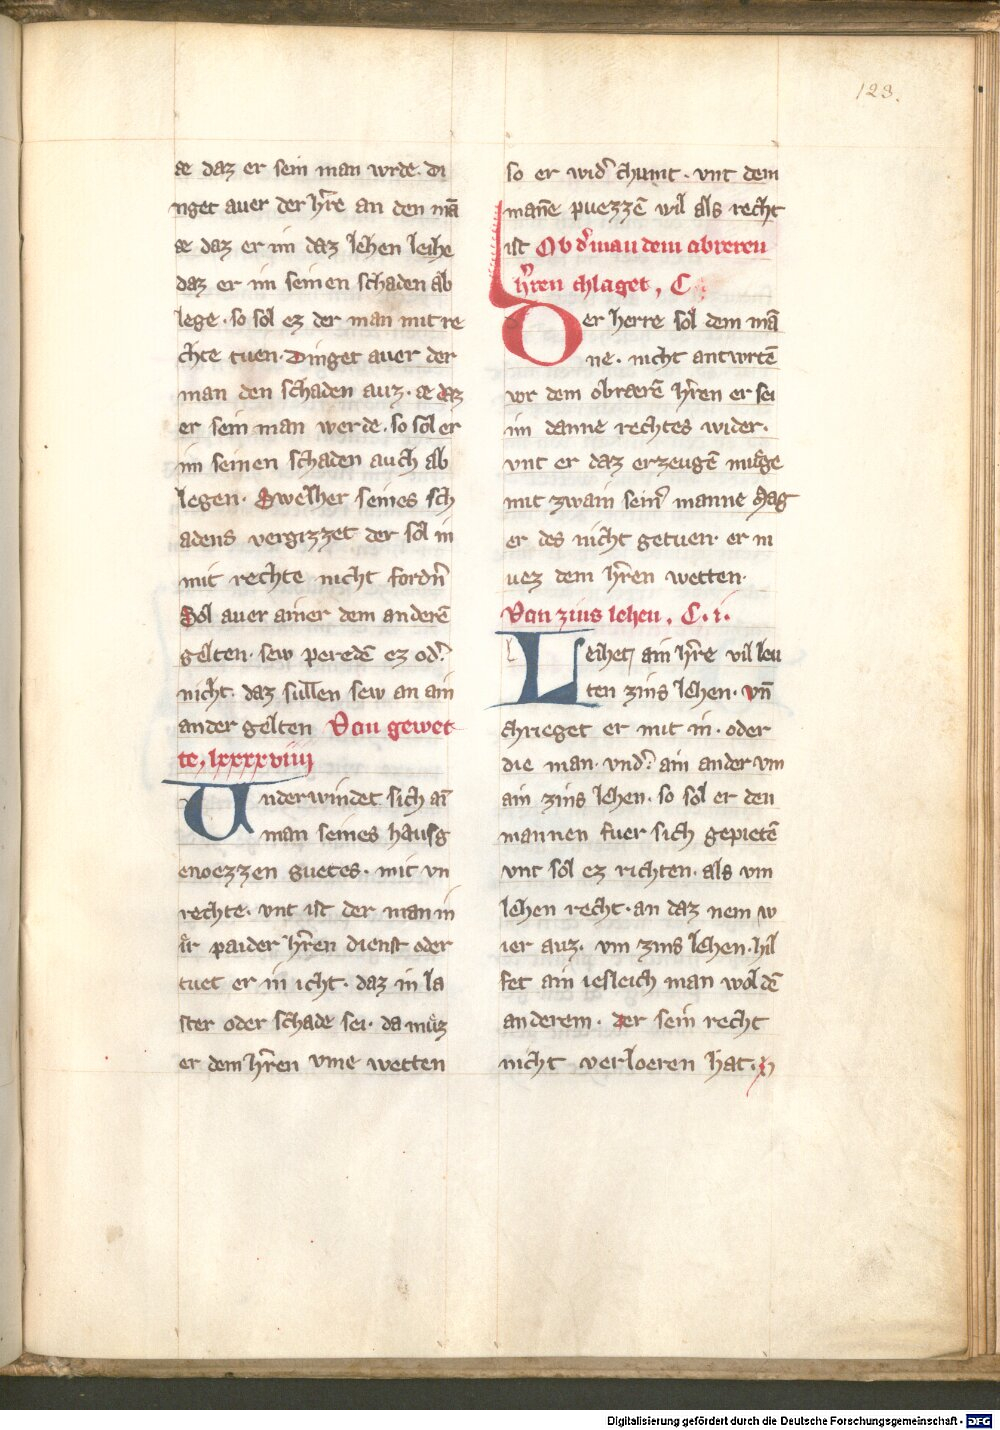 123.
æ daz er sein man wrde. di
nget auer der hr̄e an den mā
æ daz er im daz lehen leihe
daz er im seinen schaden ab
lege. so sol ez der man mit re
chte tuen. Dinget auer der
man den schaden auz. æ daz
er sein man werde. so sol er
im seinen schaden auch ab
legen. Swelher seines sch
adens vergizzet der sol in
mit rechte nicht fordn̄
Sol auer ainer dem anderē
gelten. sew peredē ez od᾽
nicht. daz sullen sew an ain
ander gelten Von gewet
te. lxxxxviiii
Vnderwindet sich ai᷑
man seines hausg
enoezzen guetes. mit vn
rechte. vnt ist der man in
ir paider hr̄en dienst oder
tuet er in icht. daz in la
ster oder schade sei. da muͤz
er dem hr̄en vme wetten
so er wid᾽ chumt. vnt dem
mañe puezzē wil als recht
ist Ob d᾽ man dem obreren
hr̄en chlaget, C
Der herre sol dem mā
ne. nicht antwrtē
vor dem obrærē hr̄en er sei
im danne rechtes wider.
vnt er daz erzeugē muͤge
mit zwain sein᾽ manne Mag
er des nicht getuen. er m
uez dem hr̄en wetten.
Von zins lehen, C. i.
Leihet ain hr̄e vil leu
ten zins lehen. vn̄
chrieget er mit in. oder
die man. vnd᾽ ain ander vm
ain zins lehen. so sol er den
mannen fuer sich gepietē
vnt sol ez richten. als vm
lehen recht. an daz nem w
ier auz. vm zins lehen. hil
fet ain iesleich man wol dē
anderem. der sein recht
nicht verloeren hat.
Digitalisierung gefördert durch die Deutsche Forschungsgemeinschaft - DFG